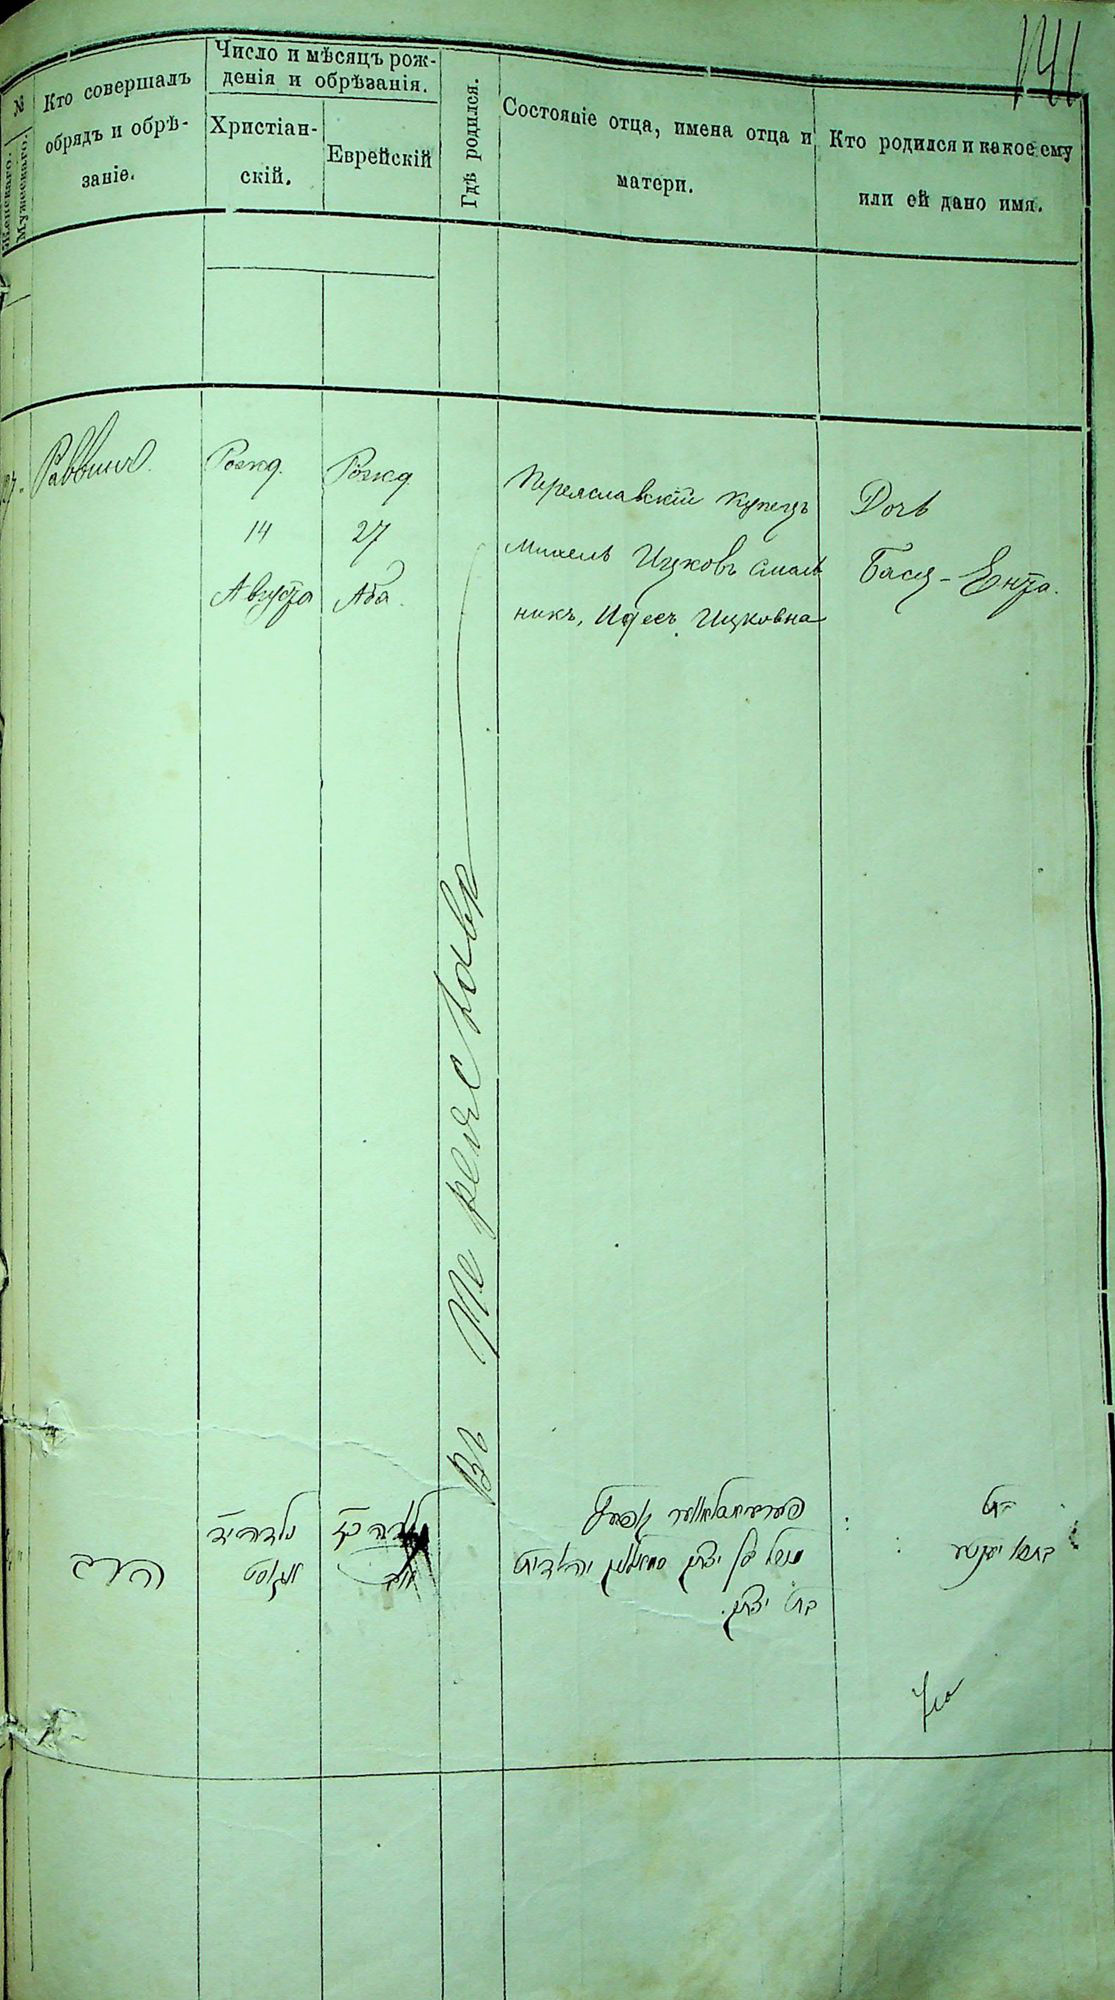 141
№
Женскаго.
Мужескаго.
Кто совершалъ
обрядъ и обрѣ-
заніе.
Число и мѣсяцъ рож-
денія и обрѣзанія.
Христіан-
скій.
Еврейскій
Гдѣ родился.
Состояніе отца, имена отца и
матери.
Кто родился и какое ему
или ей дано имя.
Раввинъ
Рожд.
14
Августа
Рожд.
27
Аба.
Въ Переяславѣ
Переяславскій купецъ
Михель Ицковъ Смаль
никъ, Идесъ Ицковна
Дочь
Бася-Ента.
הרב
נולדה יד
אוגוסט
נולדה כז
אב
בת יצחק.
בת
באסי יענטע